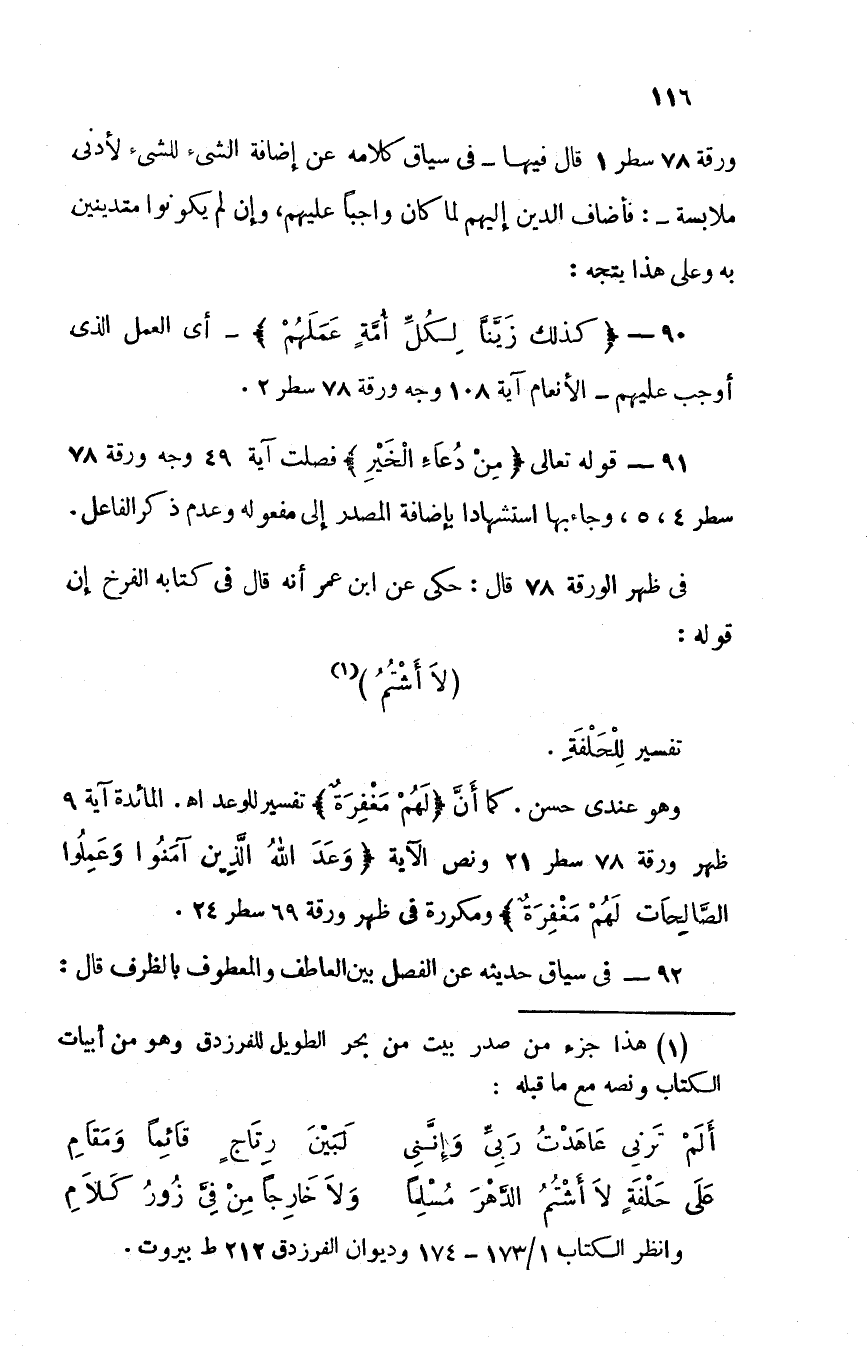 ١١٦
ورقة ٧٨ سطر ١ قال فيهـا ـ فى سياق كلامه عن إضافة الشىء للشىء لأدنى
ملابسة ـ : فأضاف الدين إليهم لما كان واجباً عليهم، وإن لم يكونوا متدينين
به وعلى هذا يتجه :
٩٠ — ﴿ كذلك زَيَّنَّا لِـكُلِّ أُمَّةٍ عَمَلَهُمْ ﴾ ـ أى العمل الذى
أوجب عليهم ـ الأنعام آية ١٠٨ وجه ورقة ٧٨ سطر ٢ .
٩١ — قوله تعالى ﴿ مِنْ دُعَاءِ الْخَيْرِ ﴾ فصلت آية ٤٩ وجه ورقة ٧٨
سطر ٤ ، ٥ ، وجاء بها استشهادا بإضافة المصدر إلى مفعوله وعدم ذكر الفاعل .
فى ظهر الورقة ٧٨ قال : حكى عن ابن عمر أنه قال فى كتابه الفرخ إن
قوله :
( لاَ أَشْتُمُ )(١)
تفسير لِلْحَلْفَةِ .
وهو عندى حسن . كما أَنَّ ﴿لَهُمْ مَغْفِرَةٌ﴾ تفسير للوعد اه . المائدة آية ٩
ظهر ورقة ٧٨ سطر ٢١ ونص الآية ﴿ وَعَدَ اللهُ الَّذِين آمَنُوا وَعَمِلُوا
الصَّالِحَات لَهُمْ مَغْفِرَةٌ ﴾ ومكررة فى ظهر ورقة ٦٩ سطر ٢٤ .
٩٢ — فى سياق حديثه عن الفصل بين العاطف والمعطوف بالظرف قال :
(١) هذا جزء من صدر بيت من بحر الطويل للفرزدق وهو من أبيات
الـكتاب ونصه مع ما قبله :
أَلَمْ تَرَنِي عَاهَدْتُ رَبِيِّ وَإِنَّـنِي لَبَيْنَ رِتَاجٍ قَائِماً وَمَقَامِ
عَلَى حَلْفَةٍ لاَ أَشْتُمُ الدَّهْرَ مُسْلِماً وَلاَ خَارِجاً مِنْ فِيَّ زُورُ كَـلاَمِ
وانظر الـكتاب ١/١٧٣ ـ ١٧٤ وديوان الفرزدق ٢١٢ ط بيروت .